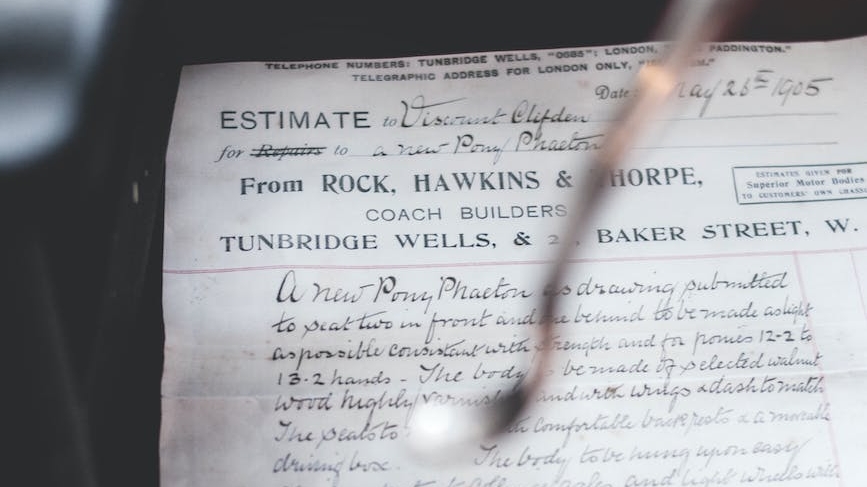 TELEPHONE NUMBERS: TUNBRIDGE WELLS, "0685"; LONDON, PADDINGTON."
TELEGRAPHIC ADDRESS FOR LONDON ONLY,
Date May 26th 1905
ESTIMATE to Viscount Clifden
for Repairs to a new Pony Phaeton
From ROCK, HAWKINS & THORPE,
ESTIMATES GIVEN FOR
Superior Motor Bodies
TO CUSTOMERS' OWN CHASSIS
COACH BUILDERS
TUNBRIDGE WELLS, & BAKER STREET, W.
A new Pony Phaeton as drawing submitted
to seat two in front and one behind to be made as light
as possible consistant with strength and for ponies 12-2 to
13.2 hands - The body to be made of selected walnut
wood highly varnished and with wings & dash to match
The seats to with comfortable back rests & a moveable
driving box. The body to be hung upon easy
and light wheels with